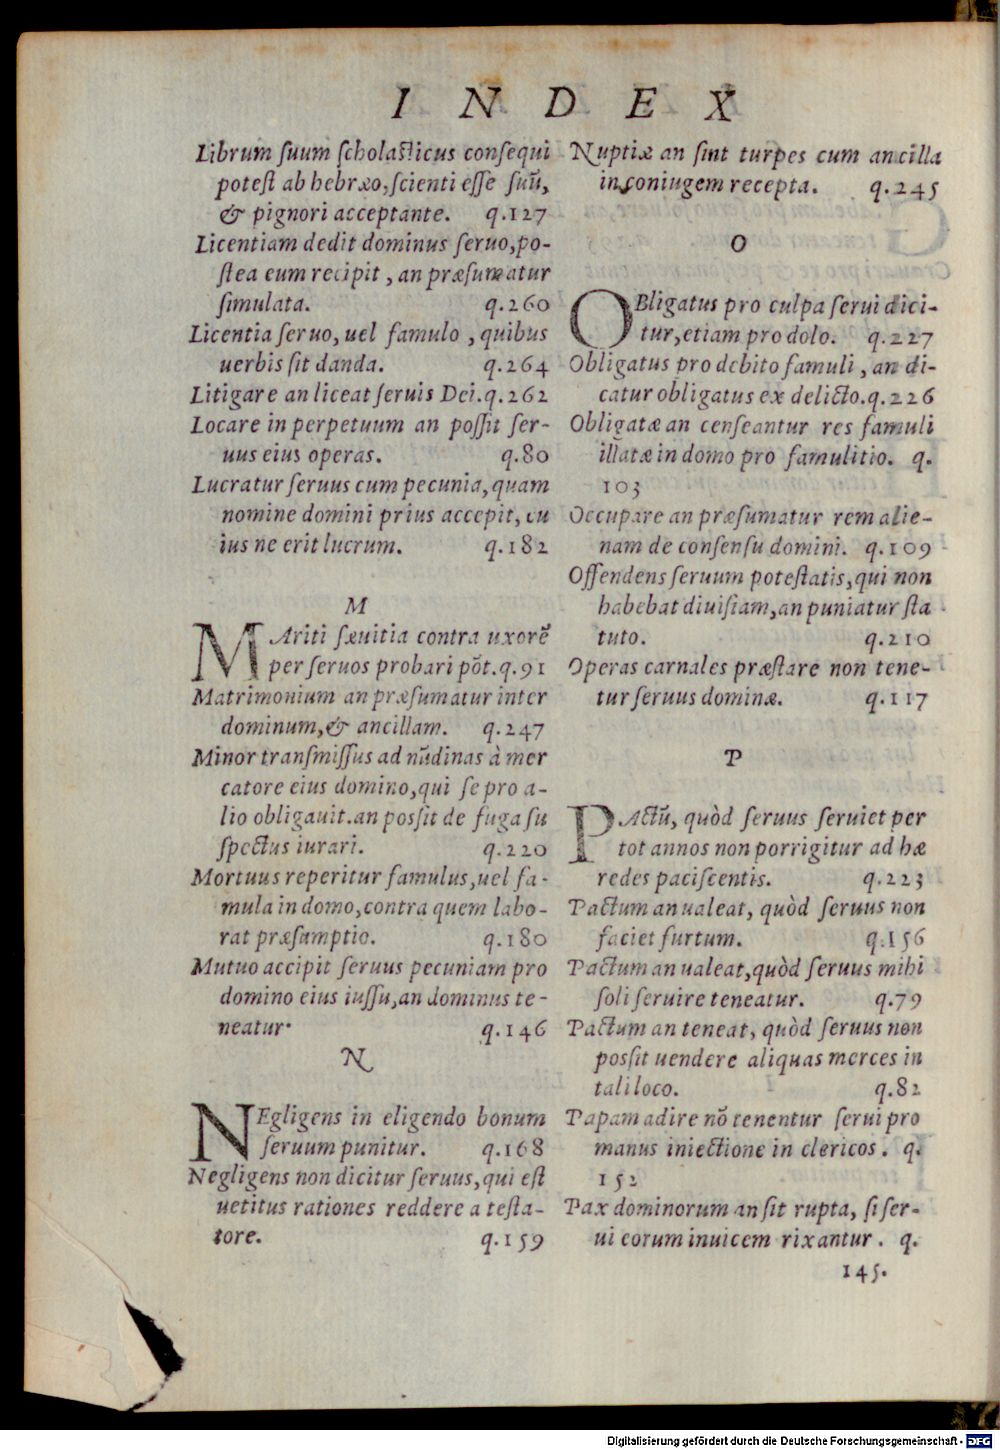 I N D E X
Librum ſuum ſcholaſticus conſequi
poteſt ab hebræo, ſcienti eſſe ſuũ,
& pignori acceptante. q.127
Licentiam dedit dominus ſeruo, po-
ſtea eum recipit, an præſumatur
ſimulata. q.260
Licentia ſeruo, uel famulo, quibus
uerbis ſit danda. q.264
Litigare an liceat ſeruis Dei. q.262
Locare in perpetuum an poſſit ſer-
uus eius operas. q.80
Lucratur ſeruus cum pecunia, quam
nomine domini prius accepit, cu
ius ne erit lucrum. q.182
M
MAriti ſæuitia contra uxorẽ
per ſeruos probari põt. q.91
Matrimonium an præſumatur inter
dominum, & ancillam. q.247
Minor tranſmiſſus ad nũdinas à mer
catore eius domino, qui ſe pro a-
lio obligauit. an posſit de fuga ſu
ſpectus iurari. q.220
Mortuus reperitur famulus, uel fa-
mula in domo, contra quem labo-
rat præſumptio. q.180
Mutuo accipit ſeruus pecuniam pro
domino eius iuſſu, an dominus te-
neatur. q.146
N
NEgligens in eligendo bonum
ſeruum punitur. q.168
Negligens non dicitur ſeruus, qui eſt
uetitus rationes reddere a teſta-
tore. q.159
Nuptiæ an ſint turpes cum ancilla
in coniugem recepta. q.245
O
OBligatus pro culpa ſerui dici-
tur, etiam pro dolo. q.227
Obligatus pro debito famuli, an di-
catur obligatus ex delicto. q.226
Obligatæ an cenſeantur res famuli
illatæ in domo pro famulitio. q.
103
Occupare an præſumatur rem alie-
nam de conſenſu domini. q.109
Offendens ſeruum poteſtatis, qui non
habebat diuiſiam, an puniatur ſta
tuto. q.210
Operas carnales præſtare non tene-
tur ſeruus dominæ. q.117
P
PActũ, quòd ſeruus ſeruiet per
tot annos non porrigitur ad hæ
redes paciſcentis. q.223
Pactum an ualeat, quòd ſeruus non
faciet furtum. q.156
Pactum an ualeat, quòd ſeruus mihi
ſoli ſeruire teneatur. q.79
Pactum an teneat, quòd ſeruus non
posſit uendere aliquas merces in
tali loco. q.82
Papam adire nõ tenentur ſerui pro
manus iniectione in clericos. q.
152
Pax dominorum an ſit rupta, ſi ſer-
ui eorum inuicem rixantur. q.
145.
Digitalisierung gefördert durch die Deutsche Forschungsgemeinschaft - DFG